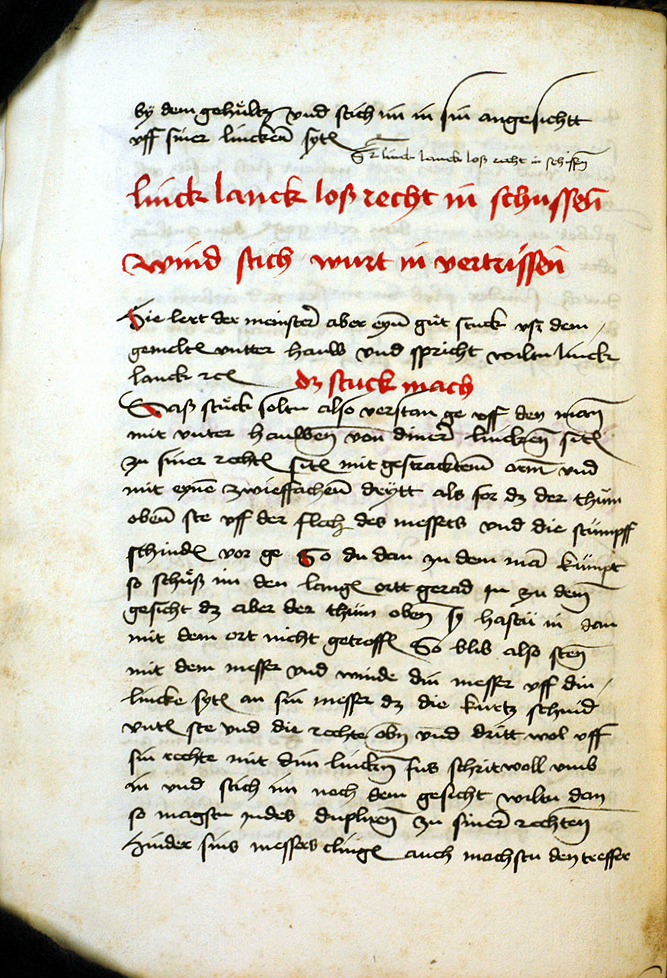 by dem gehültz vnd stich im in sin angesichtt
vff siner lincken sytt
linck lanck loß recht in schiessen
linck lanck loß recht in schussen
wind stich wurt in vertrissen
Hie lert der meinster aber eyn gůt stuck vsz dem
gemelten vntter hauw vnd spricht wiltu linck
lanck rc dz stuck mach
Daß stůck soltu also verstan ge vff den man
mit vnter hauwen von diner lincken sitt
zu siner rechten sitt mit gestracktem arm vnd
mit eynē zwieffachem drytt als for dz der thům
oben ste vff der flech des messers vnd die stümpff
schinde vor ge So du dan zu dem mā kümpt
so schüß im den langen ortt gerad in zu dem
gesicht dz aber der thům oben sy hastu in dan
mit dem ort nicht getroffen So blib also sten
mit dem messer vnd winde din messer vff din
lincke syten an sin messer dz die kurtz schnid
vnten ste vnd die rechte obn vnd dritt wol vff
sin rechte mit dim lincken fus schritt woll vmb
in vnd stich im noch dem gesicht wiltu dan
so magstu indes duplieren zu siner rechten
hinder sins messers clinge auch machstu den treffer